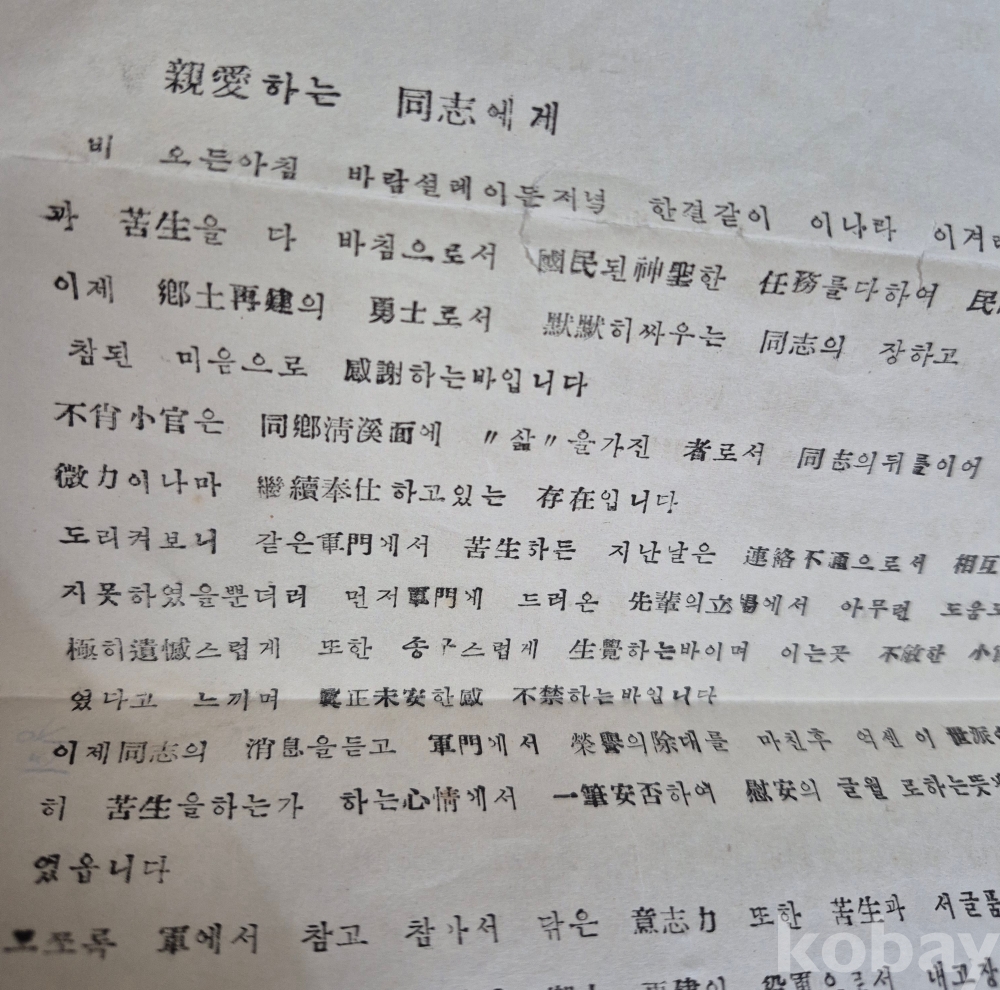 親愛하는 同志에게
비 오든아침 바람설레이든저녁 한결같이 이나라 이겨레
과 苦生을 다 바침으로서 國民된神聖한 任務를다하여 民
이제 鄕土再建의 勇士로서 默默히싸우는 同志의 장하고
참된 미음으로 感謝하는바입니다
不肖小官은 同鄕淸溪面에 〃삶〃을가진 者로서 同志의뒤를이어
微力이나마 繼續奉仕하고있는 存在입니다
도리켜보니 같은軍門에서 苦生하든 지난날은 連絡不通으로서 相互
지못하였을뿐더러 먼저軍門에 드러온 先輩의立場에서 아무런 도움도
極히遺憾스럽게 또한 송구스럽게 生覺하는바이며 이는곳 不敏한 小官
였다고 느끼며 眞正未安한感 不禁하는바입니다
이제同志의 消息을듣고 軍門에서 榮譽의除대를 마친후 억센 이 世派에
히 苦生을하는가 하는心情에서 一筆安否하여 慰安의 글월 로하는뜻
였옵니다
모쪼록 軍에서 참고 참가서 닦은 意志力 또한 苦生과 서글품
再建의 役軍으로서 내고장
kobay